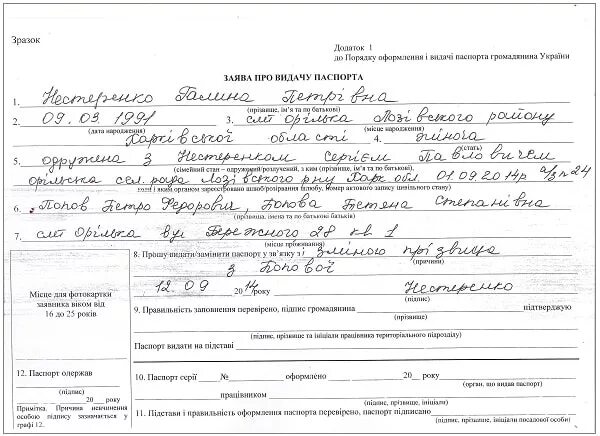 Зразок
Додаток 1
до Порядку оформлення і видачі паспорта громадянина України
ЗАЯВА ПРО ВИДАЧУ ПАСПОРТА
1. Нестеренко Галина Петрівна
(прізвище, ім'я та по батькові)
2. 09.03.1991 3. смт Орілька Лозівського району
(дата народження) (місце народження)
Харківської області 4. жіноча
(стать)
5. одружена з Нестеренком Сергієм Павловичем
(сімейний стан – одружений/розлучений, з ким (прізвище, ім'я та по батькові),
Орільська сел. рада Лозівського р-ну Харк. обл. 01.09.2014р а/з n 24
коли і яким органом зареєстровано шлюб/розірвання шлюбу, номер актового запису цивільного стану)
6. Попов Петро Федорович, Попова Тетяна Степанівна
(прізвища, імена та по батькові батьків)
7. смт Орілька вул Бережного 28 кв. 1
(місце проживання)
8. Прошу видати/замінити паспорт у зв'язку з зміною прізвища
(причини)
з Попової
12 09 2014 року Нестеренко
(підпис)
Місце для фотокартки
заявника віком від
16 до 25 років
9. Правильність заповнення перевірено, підпис громадянина підтверджую
(підпис, прізвище та ініціали працівника територіального підрозділу)
Паспорт видати на підставі
(підпис, прізвище, ініціали)
12. Паспорт одержав
(підпис)
20 року
Примітка. Причина невчинення
особою підпису зазначається у
графі 12.
10. Паспорт серії № оформлено 20 року
(орган, що видав паспорт)
працівником
(підпис, прізвище, ініціали)
11. Підстави і правильність оформлення паспорта перевірено, паспорт підписано
(підпис, прізвище, ініціали посадової особи)